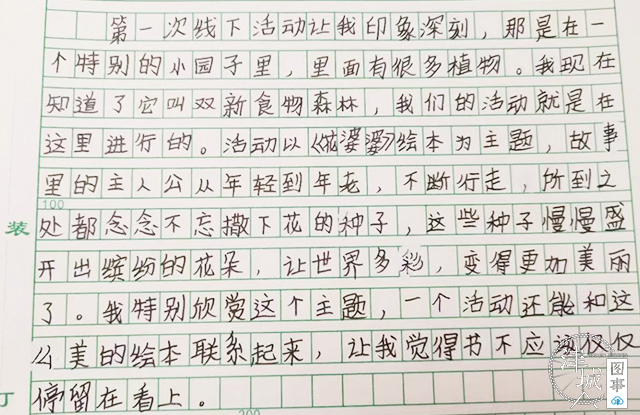 第一次线下活动让我印象深刻，那是在一
个特别的小园子里，里面有很多植物。我现在
知道了它叫双新食物森林，我们的活动就是在
这里进行的。活动以《花婆婆》绘本为主题，故事
里的主人公从年轻到年老，不断行走，所到之
100
装
处都念念不忘撒下花的种子，这些种子慢慢盛
开出缤纷的花朵，让世界多彩，变得更加美丽
了。我特别欣赏这个主题，一个活动还能和这
么美的绘本联系起来，让我觉得书不应该仅仅
订
停留在看上。
200
图事